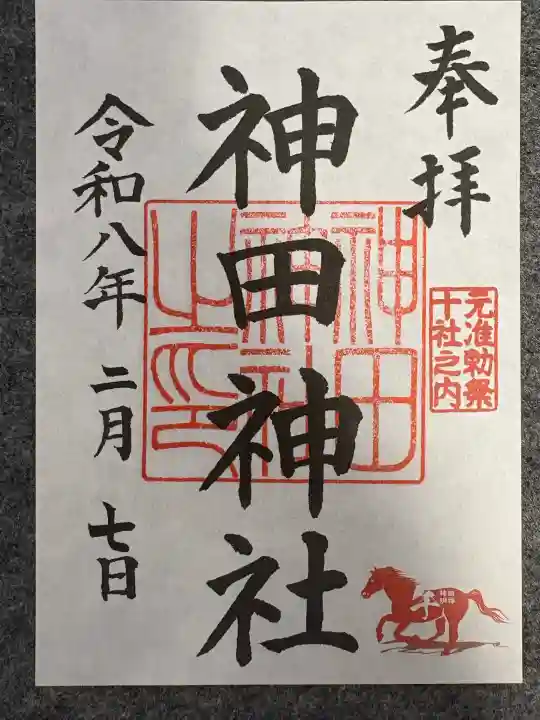 奉拝
元准勅祭
十社之内
神田神社
神田
神社
之印
令和八年 二月 七日